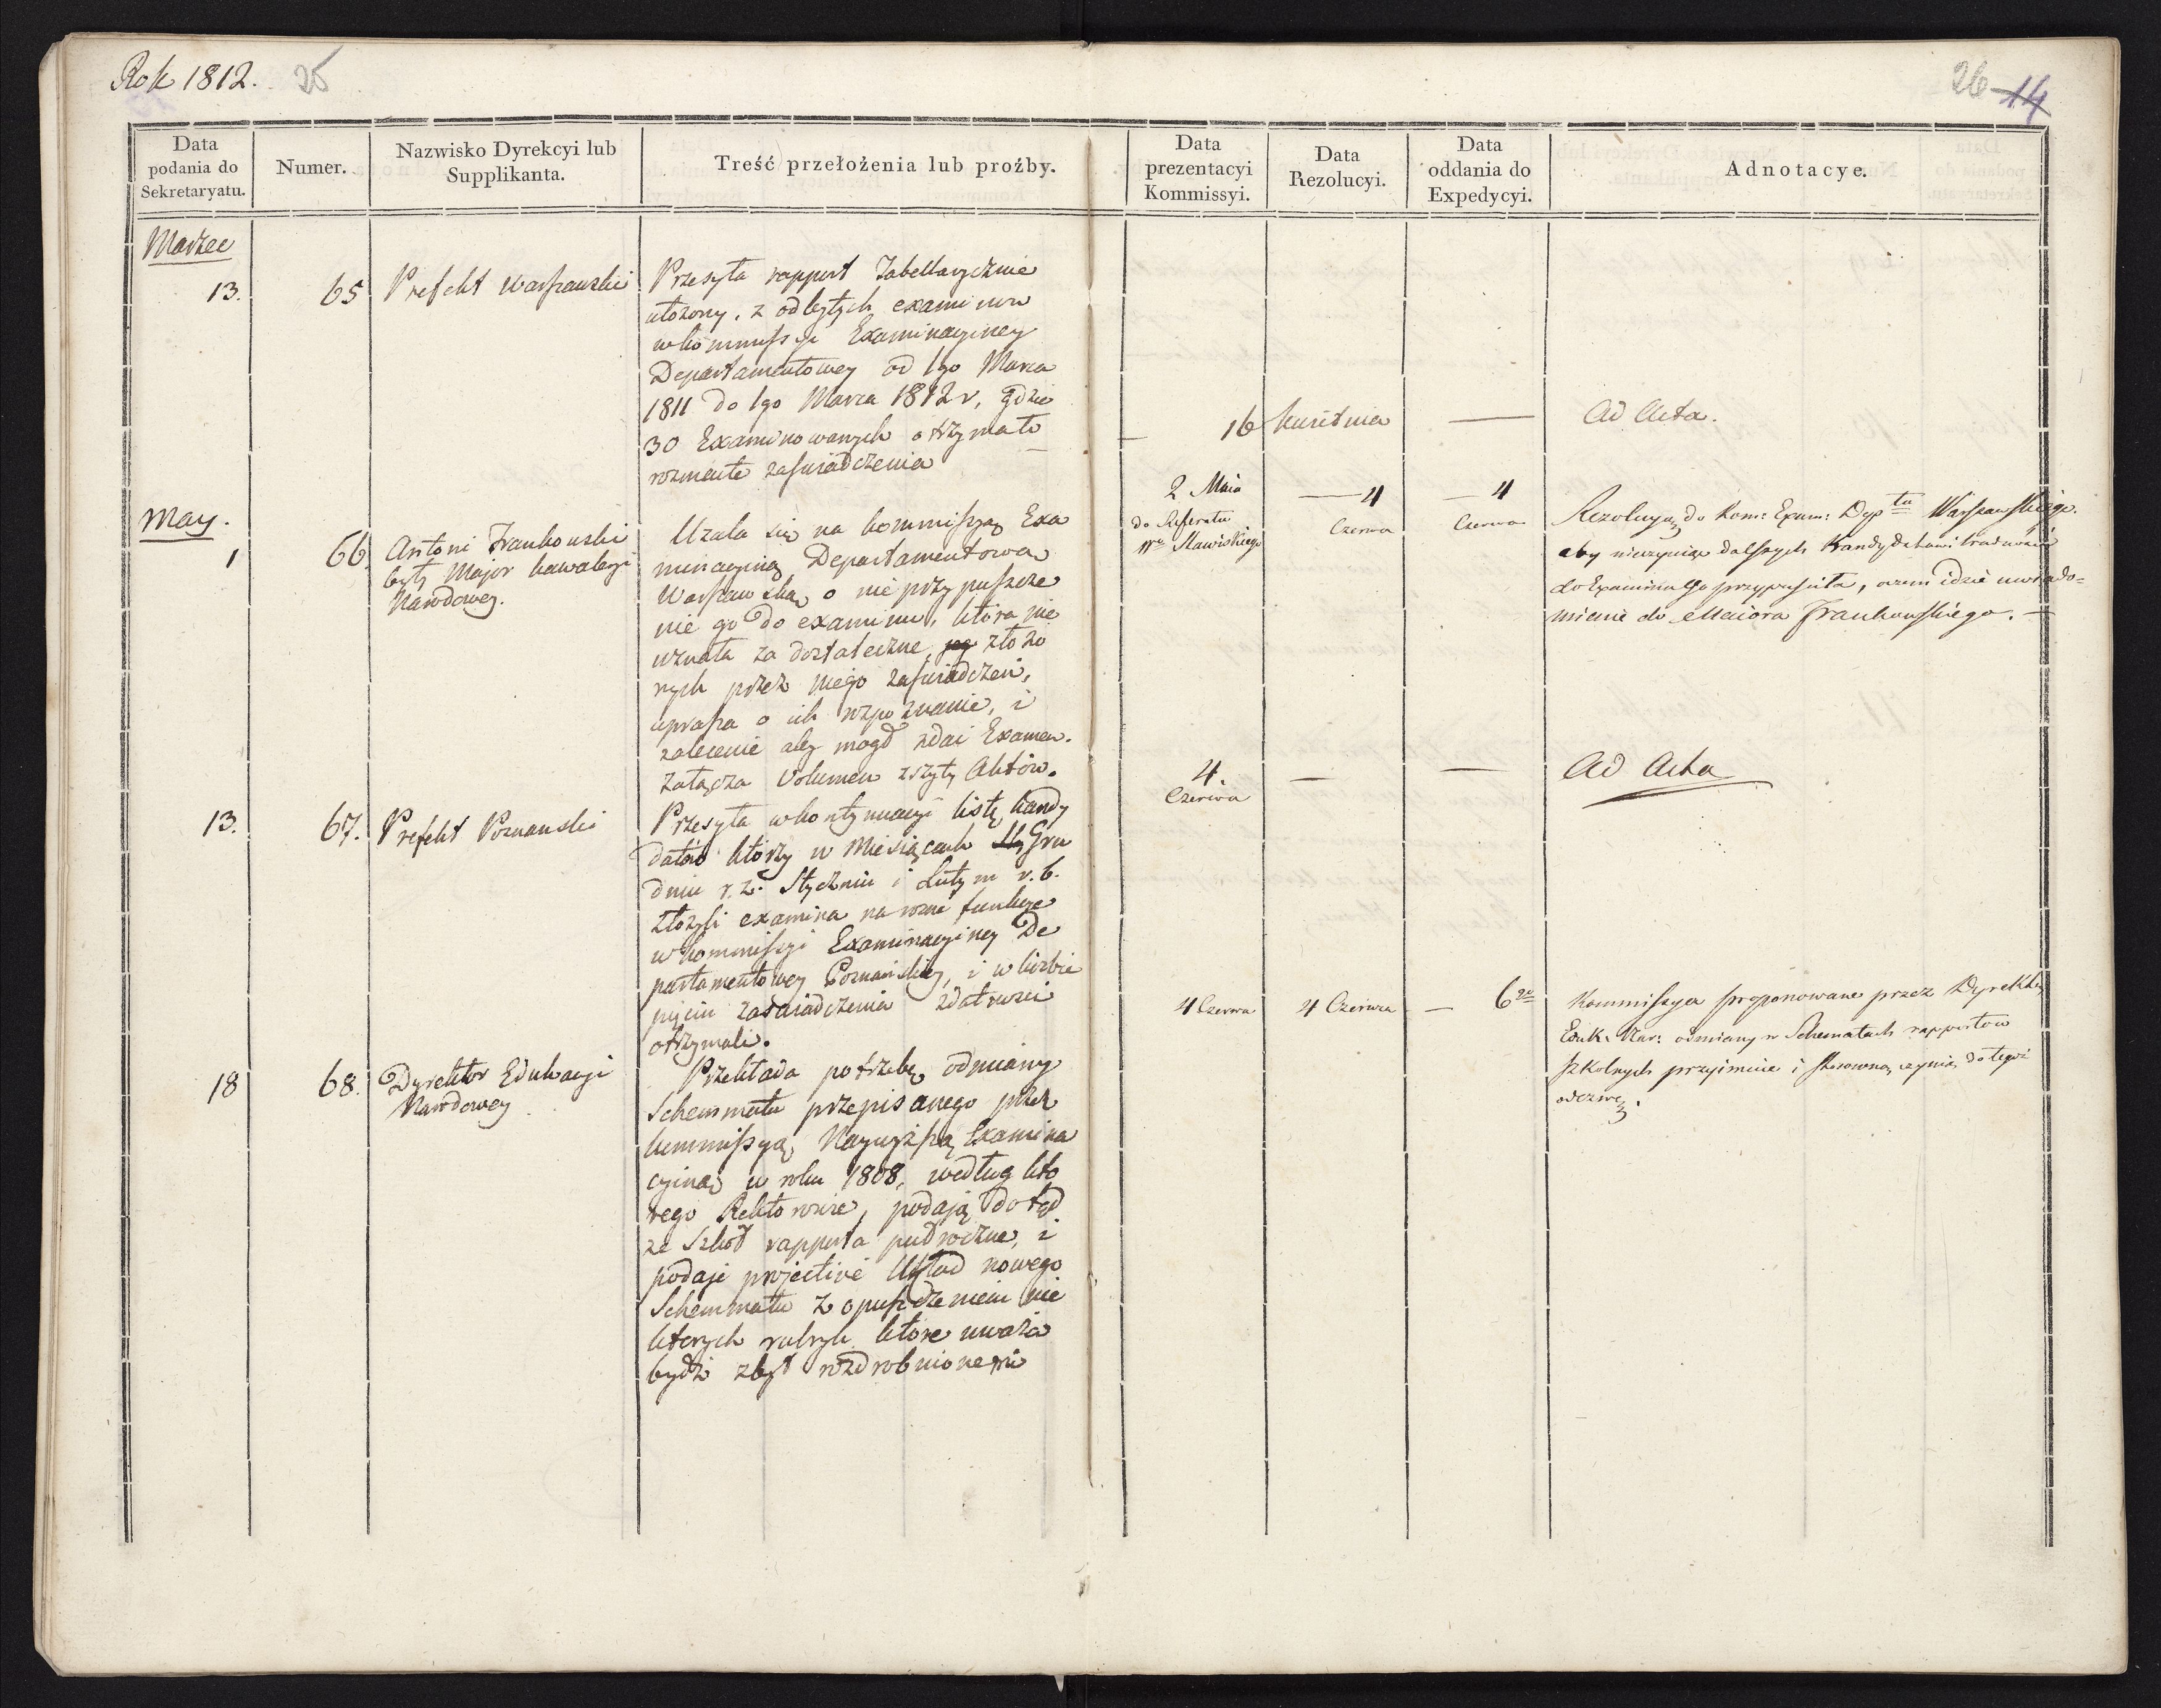 Rok 1812. 25
26 14
Data podania do Sekretaryatu.
Numer.
Nazwisko Dyrekcyi lub Supplikanta.
Treść przełożenia lub proźby.
Data prezentacyi Kommissyi.
Data Rezolucyi.
Data oddania do Expedycyi.
Adnotacye.
Marzec
13.
65
Prefekt Warszawski
Przesyła rapport Tabellarycznie
ułożony, z odbytych examinów
w kommissyi Examinacyiney
Departamentowey od 1go Marca
1811 do 1go Marca 1812 r, gdzie
30 Examinowanych otrzymało
rozmaite zaświadczenia
16 kwietnia
—
Ad Acta.
May.
1
66.
Antoni Frankowski
były Major kawaleryi
Narodowey.
Użala się na kommissyą Exa
minacyiną Departamentową
Warszawską o nieprzypuszcze
nie go do examinu, która nie
uznała za dostateczne złożo
nych przez niego zaświadczeń,
uprasza o ich rozpoznanie, i
zalecenie aby mógł zdać Examen.
załącza Volumen zszyty Aktów.
2 Maia
do Referatu
Wo Sławiskiego
— 4
Czerwca
— 4
Czerwca
Rezolucya do Kom: Exam: Dep tu Warszawskiego.
aby nieczyniąc dalszych Kandydatowi trudności
do Examinu go przypuściła, o czem idzie uwiado=
mienie do Maiora Frankowskiego. —
13.
67.
Prefekt Poznanski
Przesyła w kontynuacyi listę kandy
datów którzy w Miesiącach Gru
dniu r. z. Styczniu i Lutym r. b.
złożyli examina na rożne funkcye
w kommissyi Examinacyiney De
partamentowey Poznańskiey, i w liczbie
pięciu zaświadczenia zdatności
otrzymali.
4.
Czerwca
—
—
Ad Acta
18
68.
Dyrektor Edukacyi
Narodowey
Przekłada potrzebę odmiany
Schemmatu przepisanego przez
kommissyą Naywyższą Examina
cyiną w roku 1808, według któ
rego Rektorowie, podają dotąd
ze Szkół rapporta pułroczne, i
podaje projective Układ nowego
Schemmatu z opuszczeniem nie
których rubryk które uważa
bydź zbyt rozdrobnionemi
4 Czerwca
4 Czerwca
— 6go
Kommissya proponowane przez Dyrektora
Eduk: Nar: odmiany w Schematach rapportow
szkolnych przyimuie i stosowną czynią do tegoż
odezwę.